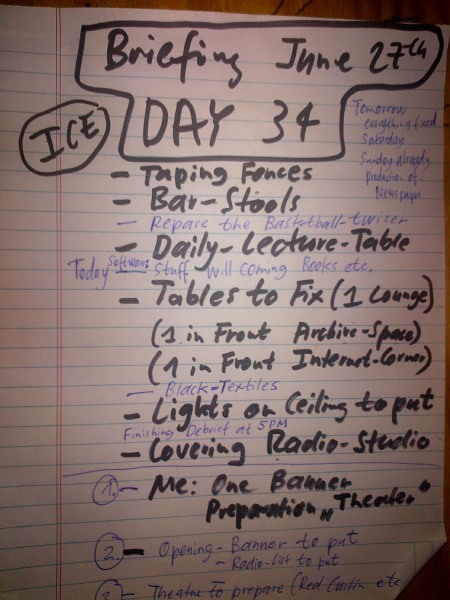 Briefing June 27th
DAY 34
ICE
Tomorrow
everything fixed
Saturday
Sunday already
production of
Newspaper
- Taping Fences
- Bar-Stools
- Repare the Basketball-twicer
- Daily-Lecture-Table
Today Software: Stuff will coming Books etc.
- Tables to Fix (1 Lounge)
(1 in Front Archive-Space)
(1 in Front Internet-Corner)
- Black-Textiles
- Lights on Ceiling to put
Finishing Debrief at 5PM
- Covering Radio-Studio
1. - Me: One Banner
Preparation „Theater"
2. - Opening-Banner to put
- Radio-list to put
3 - Theatre to prepare (Red